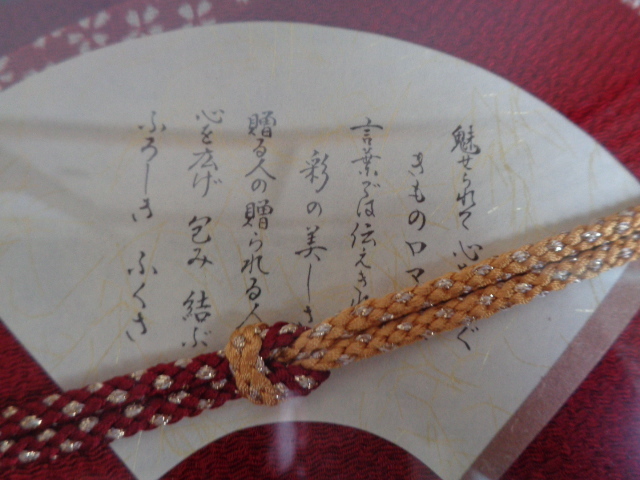 魅せられて 心 ぐ
きものロマ
言葉では伝えき
彩の美しさ
贈る人の贈られる人
心を広げ 包み 結ぶ
ふろしき ふくさ